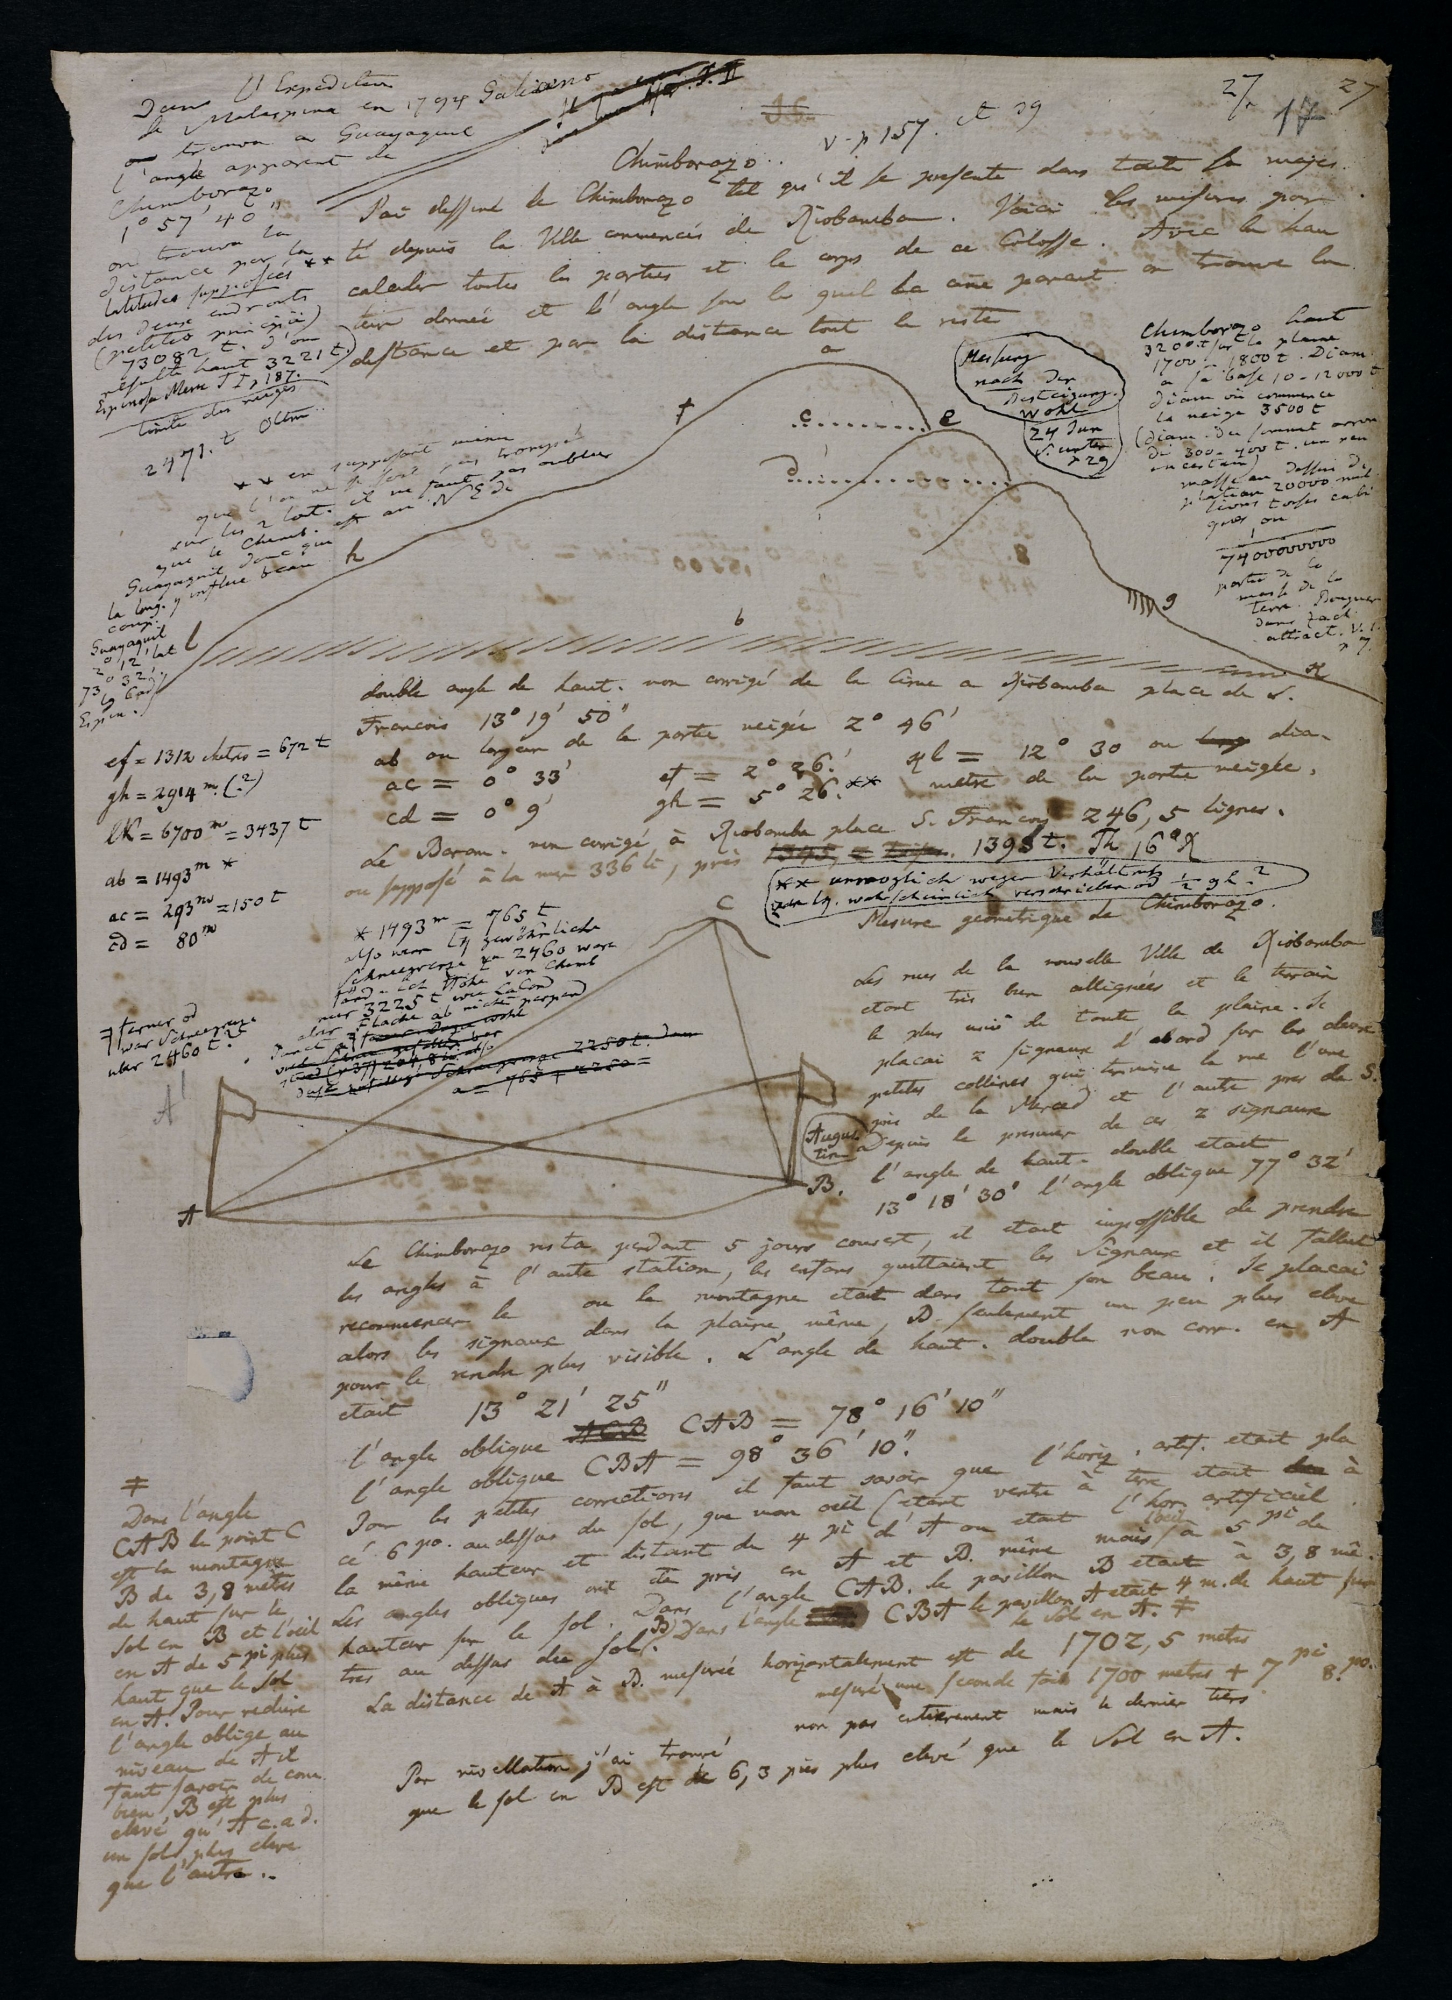 27
27
17
v. p 157. et 29
Chimborazo.
J'ai dessiné le Chimborazo tel qu'il se presente dans toute sa majes-
té depuis la Ville commencés de Riobamba. Voici les mesures pour
calculer toutes les parties et le corps de ce Colosse. Avec la hau
teur donnée et l'angle sur le quel la cime parait on trouve la
distance et par la distance tout le reste
Dans l'Expedition
de Malaspina en 1794 Galiano
on trouva a Guayaquil
l'angle apparent de
Chimborazo
1° 57' 40"
on trouva la
distance par les
latitudes supposées **
des deux endroits
(petites
73082 t. d'ou
resulte haut 3221 t.)
Espinosa Mem T I p 187.
limite des neiges
2471. t Oltm.
** en supposant meme
que l'on ne se soit pas trompé
sur les 2 lat. il ne faut pas oublier
que le Chimb. est au NE de
Guayaquil donc que
la long. y influe beau
coup.
Guayaquil
2° 12' lat
73° 32'
Espin.
a
f
c
e
d
h
b
g
l
k
Messung
nach der
Besteigung.
wohl
24 Jun
S. unten
p 29
Chimborazo haut
3200 t sur la plaine
1700 - 1800 t. Diam
a sa base 10-12000 t
diam où commence
la neige 3500 t
(diam du sommet arron
di 300-400 t. un peu
incertain)
masse au dessus du
plateau 20000 mil
lions toises cubi
ques ou
1
7400000000
partie de la
masse de la
terre. Bouguer
dans Zach
attract. V. 1.
p 7.
double angle de haut. non corrigé de la Cime a Riobamba place de S.
Francois 13° 19' 50"
ab ou largeur de la partie neigée 2° 46'
ac = 0° 33' ef = 2° 26.' kl = 12° 30 ou dia-
cd = 0° 9' gh = 5° 26.' ** mètre de la partie neigée.
Le Barom. non corrigé à Riobamba place S. Francois 246,5 lignes.
ou supposé à la mer 336 li, près 1395 t. Th 16° R
** unmoglich wegen Verhältniss
zu lg. wahrscheinlich verschrieben od ½ gh?
ef = 1312 metres = 672 t
gh = 2914 m. (?)
lk = 6700 m = 3437 t
ab = 1493 m *
ac = 293 m = 150 t
cd = 80 m
* 1493 m = 765 t
also wenn ich gewöhnliche
Schneegrenze zu 2460 ware
fänd ich Höhe von Chimb
nur 3225 t wie LaCond
aber Fläche ab nicht perpend
ferner od
war Schneegrenze
uber 2460 t.?
a = 765 + 2250 =
Mesure geometrique de Chimborazo.
Les rues de la nouvelle Ville de Riobamba
etant très bien allignées et le terrain
le plus uni de toute la plaine. Je
placai 2 signaux d'abord sur les deux
petites collines qui termine la rue l'une
près de la Merced et l'autre pres de S.
Augus
tin
Depuis le premier de ces 2 signaux
l'angle de haut. double etait
13° 18' 30" l'angle oblique 77° 32'
C
A'
A
B.
Le Chimborazo resta pendant 5 jours couvert, il etait impossible de prendre
les angles à l'autre station, les enfans quittaient les signaux et il fallut
recommencer le ou la montagne etait dans tout son beau. Je placai
alors les signaux dans la plaine même, B seulement un peu plus elevé
pour le rendre plus visible. L'angle de haut. double non corr. en A
etait 13° 21' 25"
l'angle oblique ACB CAB = 78° 16' 10"
l'angle oblique CBA = 98° 36' 10".
Pour les petites corrections il faut savoir que l'horiz. artif. etait pla
cé 6 po. au dessus du sol, que mon oeil (etant ventre à terre etait à
la même hauteur et distant de 4 pi d'A ou etait l'hor. artificiel.
Les angles obliques ont été pris en A et B. même mais l'oeil à 5 pi de
hauteur sur le sol. Dans l'angle CAB. le pavillon B etait à 3,8 mè-
tres au dessus du sol B. Dans l'angle CBA le pavillon A etait 4 m. de haut sur
le Sol en A. ‡
La distance de A à B mesurée horizontalement est de 1702,5 metres
mesuré une seconde fois 1700 metres + 7 pi 8. po.
non pas entierement mais le dernier tiers
Par nivellation j'ai trouvé
que le sol en B est de 6,3 piès plus elevé que le Sol en A.
‡
Dans l'angle
CAB le point C
est la montagne
B de 3,8 metres
de haut sur le
Sol en B et l'oeil
en A de 5 pi plus
haut que le Sol
en A. Pour reduire
l'angle oblige au
niveau de A il
faut savoir de com
bien B est plus
elevé qu'A c.a.d.
un sol plus elevé
que l'autre.